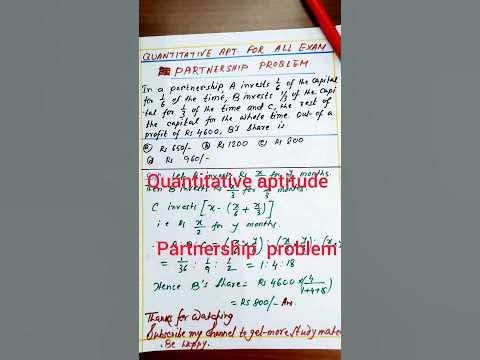 QUANTITATIVE APT FOR ALL EXAM
PARTNERSHIP PROBLEM
In a partnership, A invests 1/6 of the capital
for 1/6 of the time, B invests 1/3 of the capi
tal for 1/3 of the time and C, the rest of
the capital for the whole time. Out of a
profit of Rs 4600, B's share is
a) Rs 650/- b) Rs 1200 c) Rs 800
d) Rs 960/-
Quantitative aptitude
C invests [x - (x/6 + x/3)]
i.e Rs x/2 for y months.
Partnership problem
= 1/36 : 1/9 : 1/2 = 1:4:18
Hence B's Share = Rs 4600 × (4/1+4+18)
= Rs 800/- Ans.
Thanks for Watching
Subscribe my channel to get more study mate
Be happy.